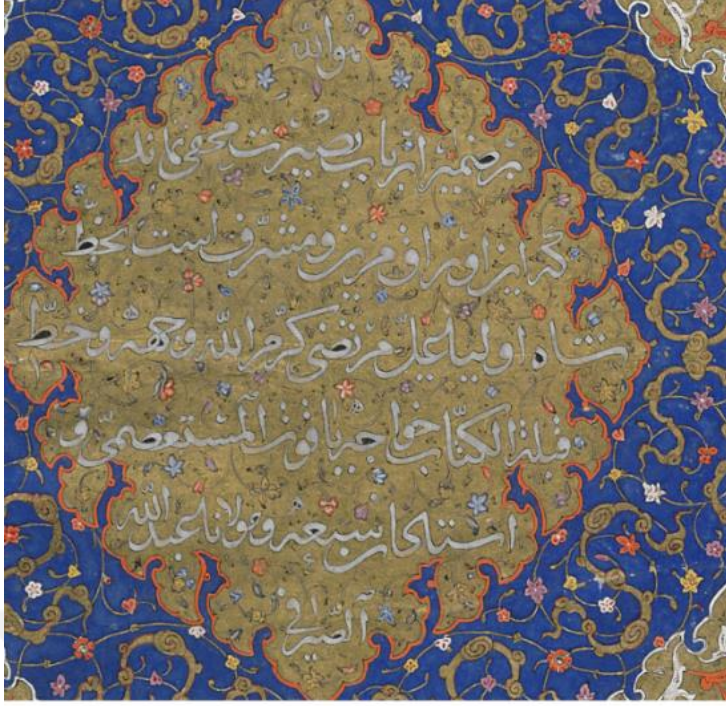 هو الله
بر ضمیر ارباب بصیرت مخفی نماند
که این اوراق مزین و مشرف است بخطّ
شاه اولیا علی مرتضی کرّم الله وجهه و خطّ
قبلة الکتّاب خواجه یاقوت المستعصمیّ و
استادان سبعه و مولانا عبد الله
الصیرافی